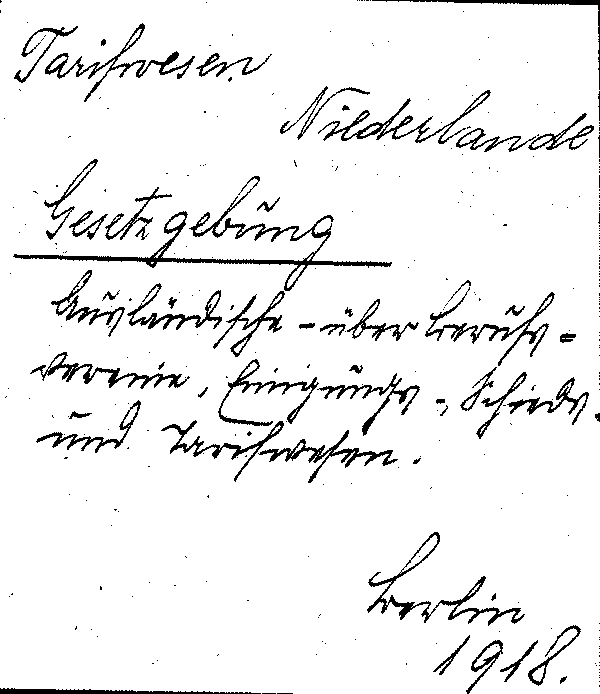 Tarifwesen
Niederlande
Gesetzgebung
Ausländische - über Berufs=
vereine, Einigungs-, Schieds-
und Tarifwesen.
Berlin
1918.